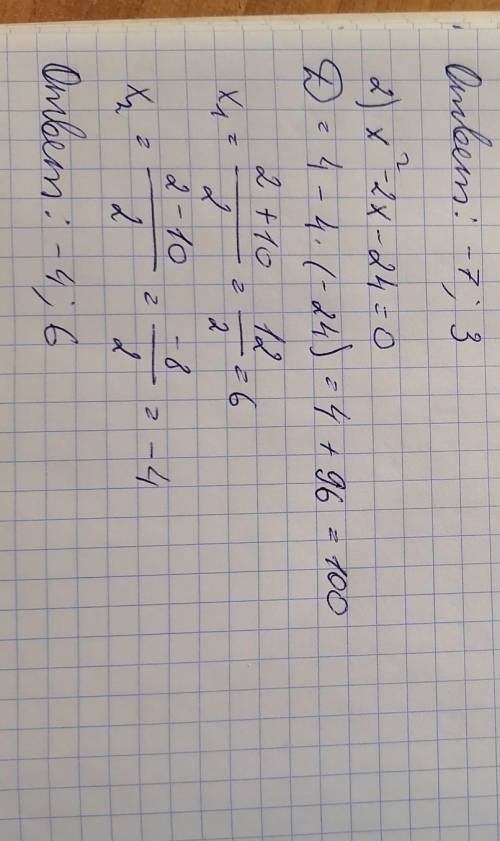 Ответ: -7; 3
2) x² - 2x - 24 = 0
D = 4 - 4·(-24) = 4 + 96 = 100
x₁ = (2 + 10)/2 = 12/2 = 6
x₂ = (2 - 10)/2 = -8/2 = -4
Ответ: -4; 6